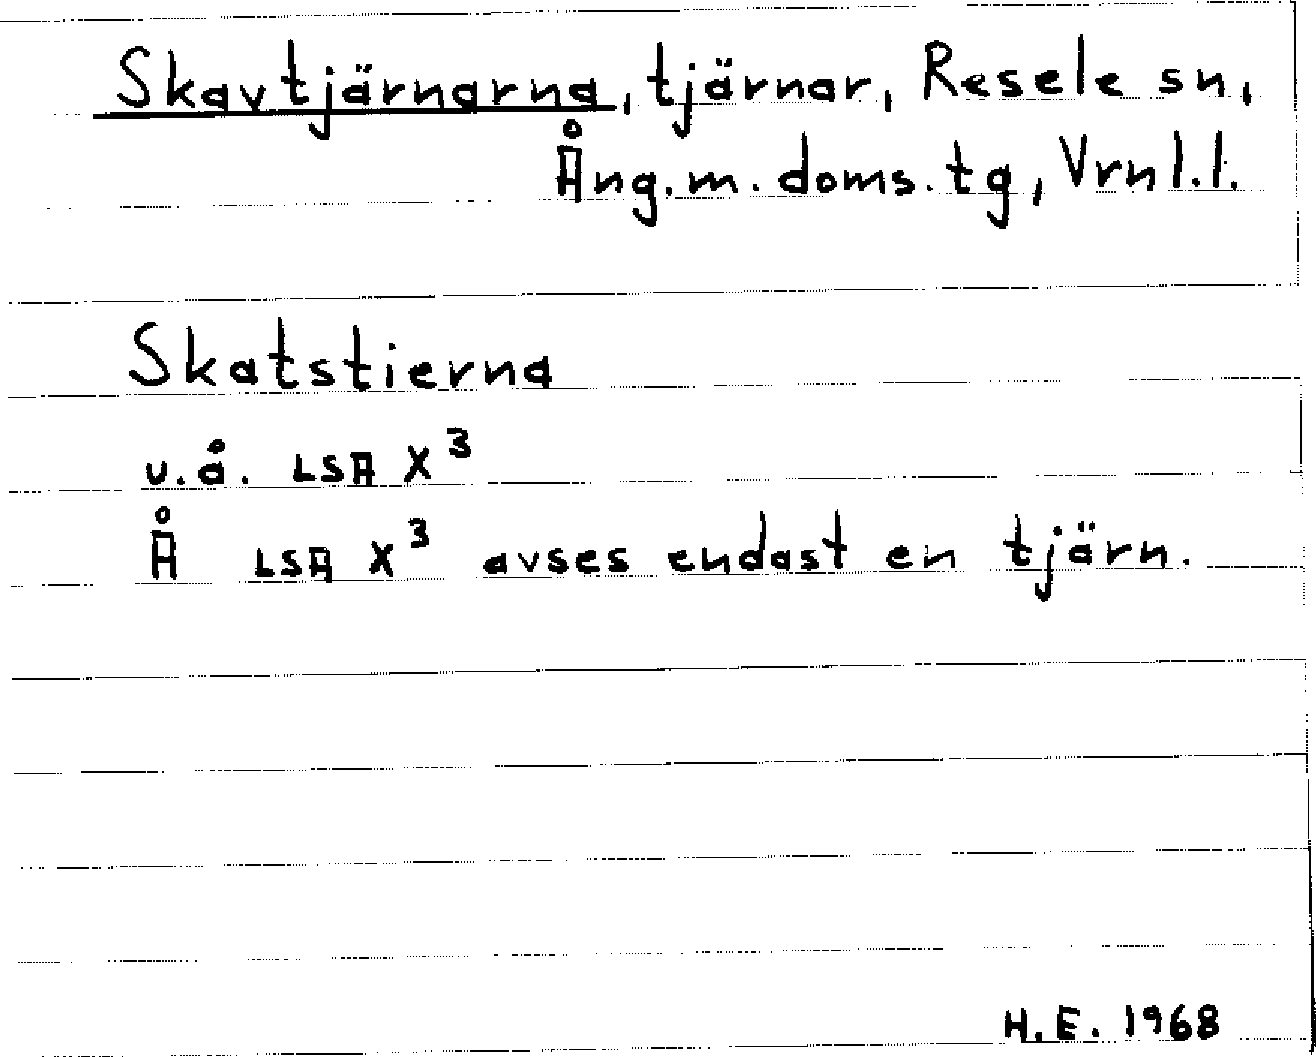 Skavtjärnarna, tjärnar, Resele sn,
Ång.m. doms. tg, Vrnl.l.
Skatstierna
u.å. LSA X³
Å LSA X³ avses endast en tjärn.
H.E. 1968